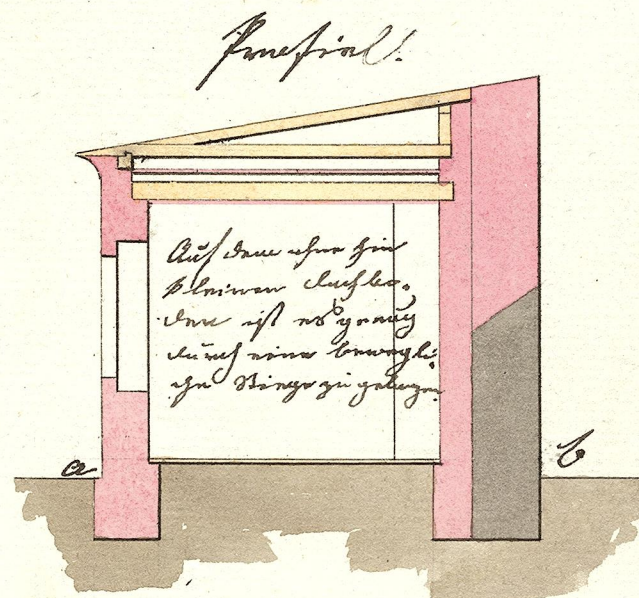 Profiel.
Auf dem ohne hin
kleinen Dachbo„
den ist es genug
durch eine bewegli„
che Stiege zu gelangen
a b